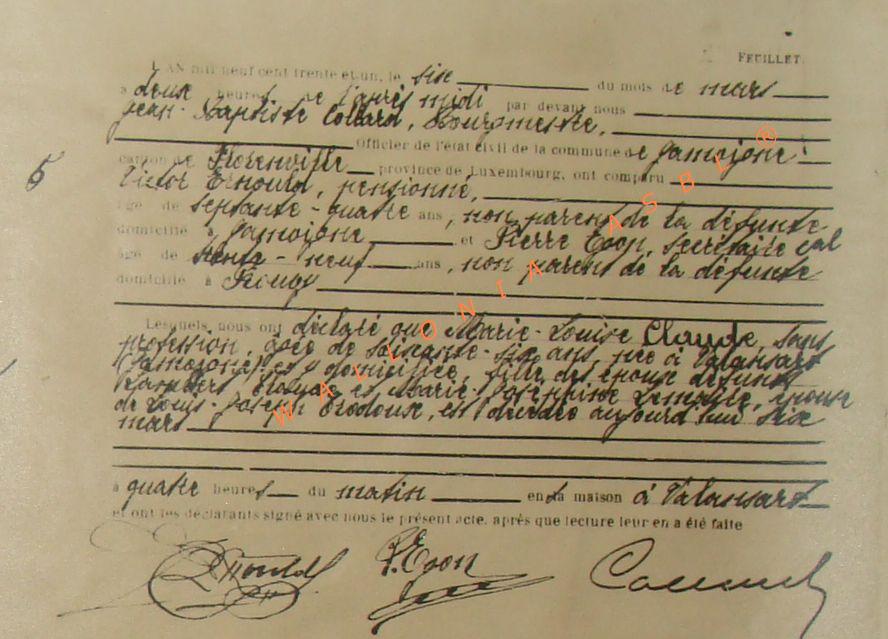 FEUILLET.
L'AN mil neuf cent trente et un, le sixe du mois de mars
à deux heures de l'après midi par devant nous
Jean-Baptiste Collard, Bourgmestre,
Officier de l'état civil de la commune de Jamoigne
5
canton de Florenville province de Luxembourg, ont comparu
Victor Ernould, pensionné,
âgé de septante-quatre ans, non parent de la défunte
domicilié à Jamoigne et Pierre Goon, secrétaire cal
âgé de trente-neuf ans, non parent de la défunte
domicilié à
Lesquels nous ont déclaré que Marie-Louise Claude, sans
profession, âgée de soixante-six ans, née à Valansart
(Jamoigne) et y domiciliée, fille des époux défunts
Lambert Claude et Marie-Joséphine Lemaire, épouse
de Louis-Joseph est décédée aujourd'hui sixe
mars
à quatre heures du matin en sa maison à Valansart
et ont les déclarants signé avec nous le présent acte, après que lecture leur en a été faite
WALLONIA ASBL ®